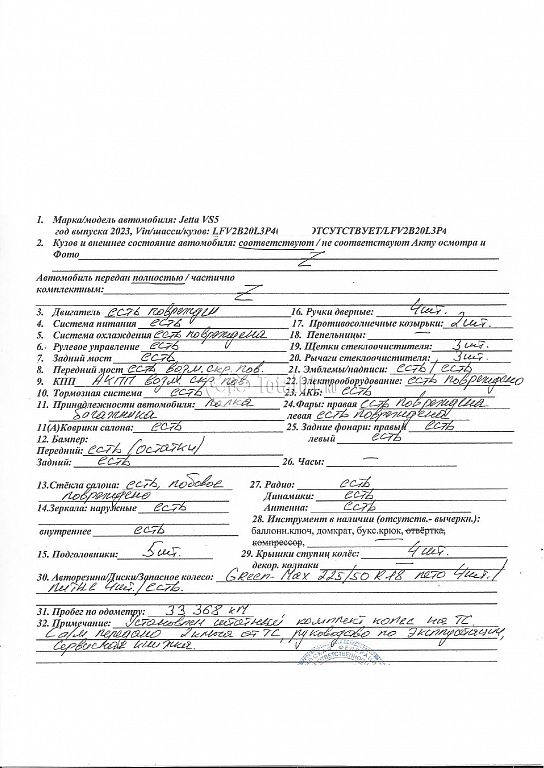 1. Марка/модель автомобиля: Jetta VS5
год выпуска 2023, Vin/шасси/кузов: LFV2B20L3P4 ОТСУТСТВУЕТ/LFV2B20L3P4
2. Кузов и внешнее состояние автомобиля: соответствуют / не соответствуют Акту осмотра и
Фото Z
Автомобиль передан полностью / частично
комплектным: Z
3. Двигатель есть поврежден 16. Ручки дверные: 4шт.
4. Система питания есть 17. Противосолнечные козырьки: 2шт.
5. Система охлаждения есть повреждена 18. Пепельницы: —
6. Рулевое управление есть 19. Щетки стеклоочистителя: 3шт.
7. Задний мост есть 20. Рычаги стеклоочистителя: 3шт.
8. Передний мост есть возм. скр. пов. 21. Эмблемы/надписи: есть / есть
9. КПП АКПП возм. скр. пов 22. Электрооборудование: есть повреждено
10. Тормозная система есть 23. АКБ: есть
11. Принадлежности автомобиля: полка 24.Фары: правая есть повреждена
багажника левая есть повреждена
11(А)Коврики салона: есть 25. Задние фонари: правый есть
12. Бампер: левый есть
Передний: есть (остатки)
Задний: есть 26. Часы: —
13.Стёкла салона: есть, лобовое 27. Радио: есть
повреждено Динамики: есть
14.Зеркала: наружные есть Антенна: есть
28. Инструмент в наличии (отсутств.- вычеркн.):
внутреннее есть баллонн.ключ, домкрат, букс.крюк, отвёртка,
компрессор,
15. Подголовники: 5шт. 29. Крышки ступиц колёс: 4шт.
декор. колпаки —
30. Авторезина/Диски/Запасное колесо: Green-Max 225/50 R18 лето 4шт./
литые 4шт./ есть.
31. Пробег по одометру: 33 368 км
32. Примечание: Установлен штатный комплект колес на ТС
С а/м передано 2 ключа от ТС, руководство по эксплуатации,
сервисная книжка.